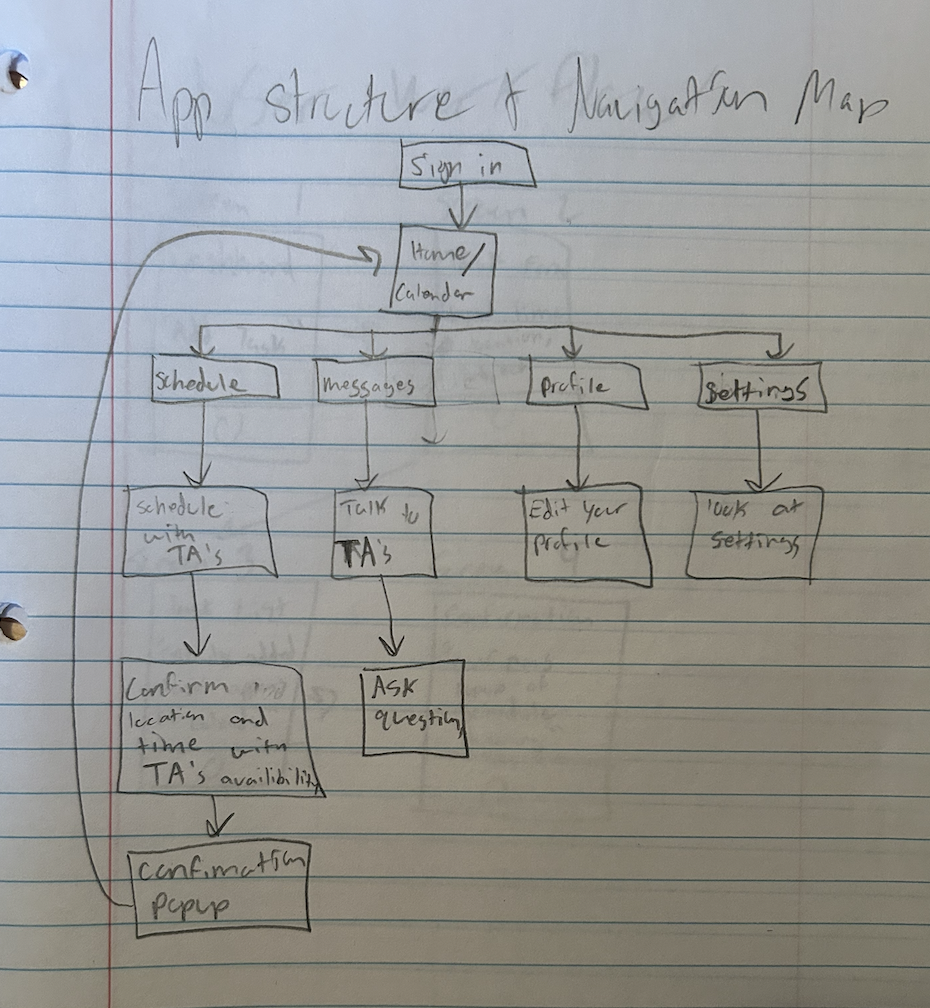 App structure & Navigation Map
Sign in
Home/
Calendar
Schedule
messages
profile
settings
schedule
with
TA's
Talk to
TA's
Edit your
profile
look at
settings
Confirm
location and
time with
TA's availibility
Ask
question
confirmation
popup